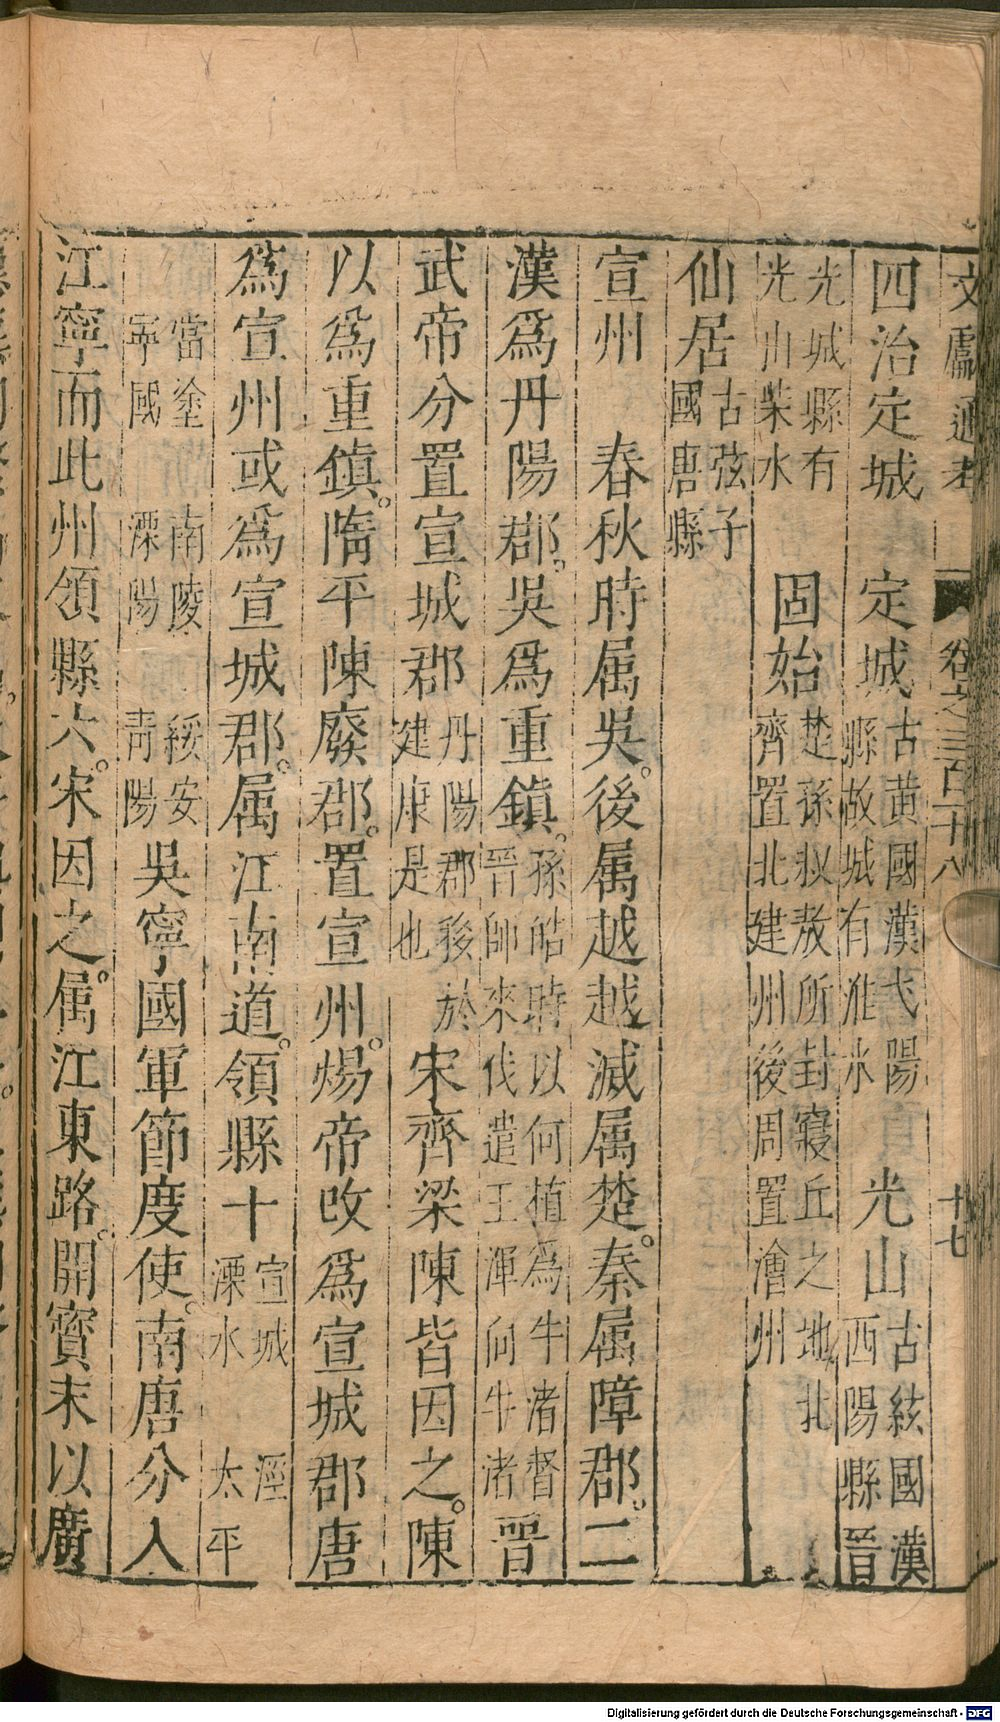 文獻通考 卷之三百十八 十七
四治定城 定城 古黃國漢弋陽縣故城有淮水 光山 古絃國漢西陽縣晉
光城縣有光山柴水 固始 楚孫叔敖所封寢丘之地北齊置北建州後周置澮州
仙居 古弦子國唐縣
宣州 春秋時属吳後属越越滅属楚秦属障郡二
漢爲丹陽郡吳爲重鎮 孫皓時以何植爲牛渚督晉師來伐遣王渾向牛渚 晉
武帝分置宣城郡 丹陽郡後於建康是也 宋齊梁陳皆因之陳
以爲重鎮隋平陳廢郡置宣州煬帝改爲宣城郡唐
爲宣州或爲宣城郡属江南道領縣十 宣城 涇 溧水 太平
當塗 南陵 綏安 寧國 溧陽 青陽 吳寧國軍節度使南唐分入
江寧而此州領縣六宋因之属江東路開寶末以廣
Digitalisierung gefördert durch die Deutsche Forschungsgemeinschaft - DFG